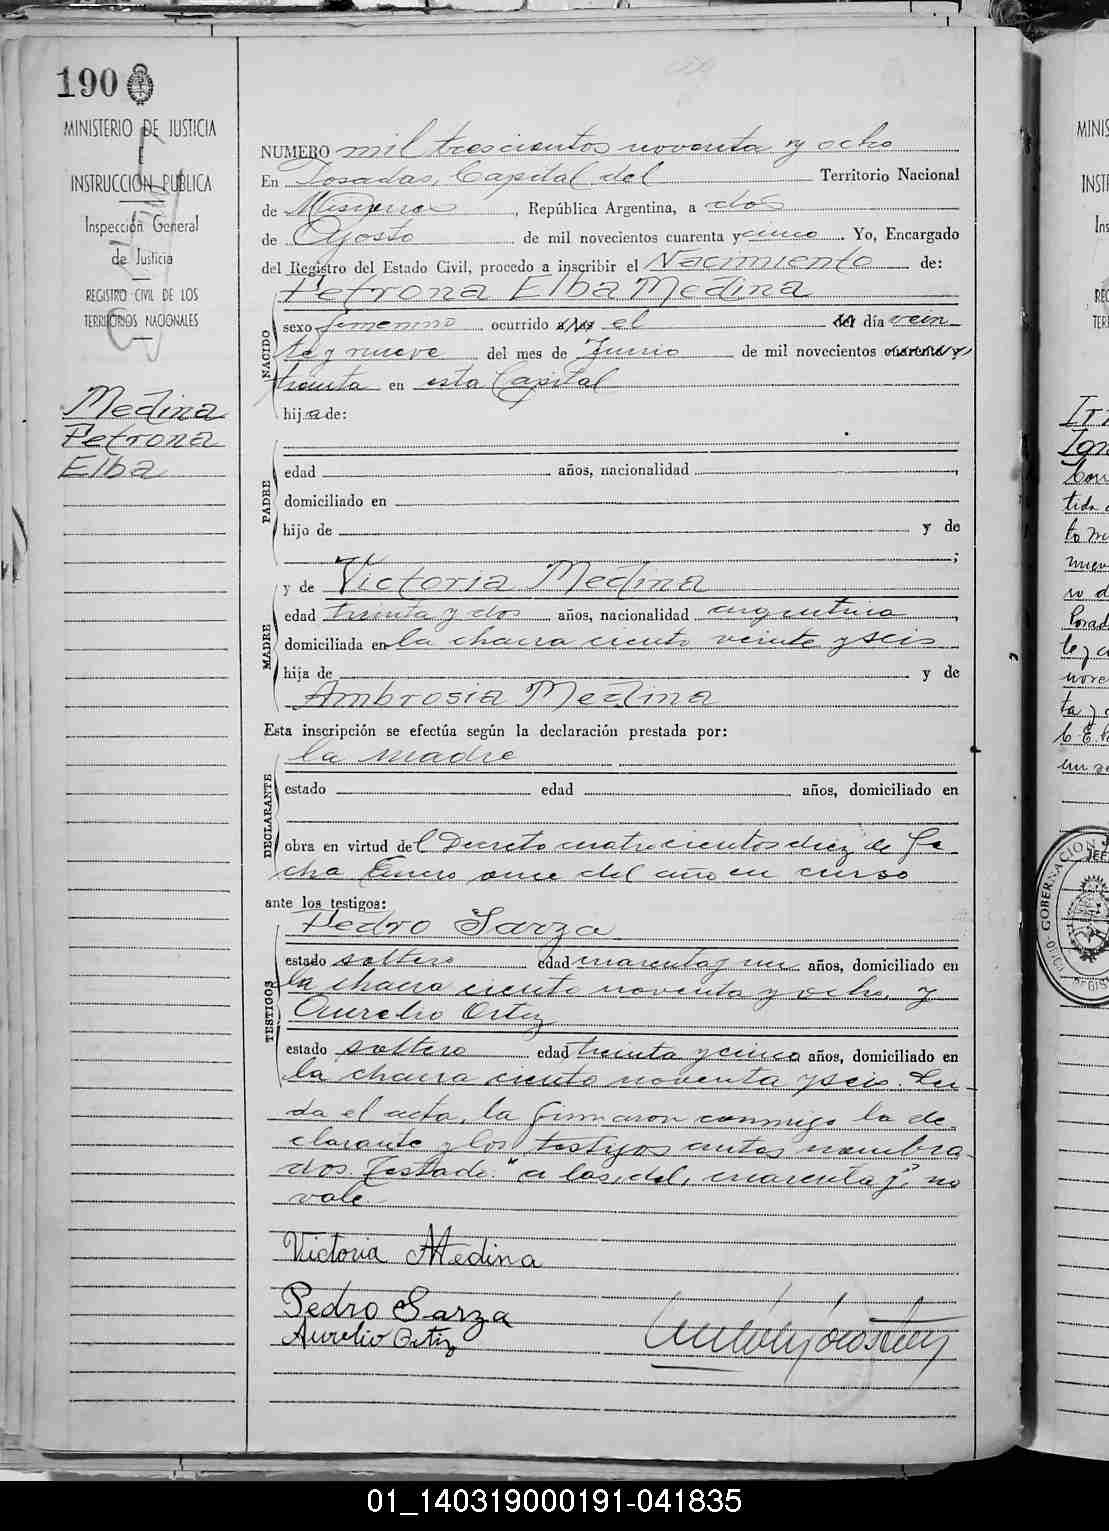 190
MINISTERIO DE JUSTICIA
E
INSTRUCCIÓN PUBLICA
Inspección General
de Justicia
REGISTRO CIVIL DE LOS
TERRITORIOS NACIONALES
Medina
Petrona
Elba
NUMERO mil trescientos noventa y ocho
En Posadas, Capital del Territorio Nacional
de Misiones, República Argentina, a dos
de Agosto de mil novecientos cuarenta y cinco. Yo, Encargado
del Registro del Estado Civil, procedo a inscribir el Nacimiento de:
NACIDO
Petrona Elba Medina
sexo femenino ocurrido a las el del día vein
te y nueve del mes de Junio de mil novecientos cuarenta y
treinta en esta Capital
hija de:
PADRE
edad años, nacionalidad ,
domiciliado en
hijo de y de
;
MADRE
y de Victoria Medina
edad treinta y dos años, nacionalidad argentina,
domiciliada en la chacra ciento veinte y seis
hija de y de
Ambrosia Medina
Esta inscripción se efectúa según la declaración prestada por:
DECLARANTE
la madre
estado edad años, domiciliado en
obra en virtud del Decreto cuatrocientos diez de fe
cha Enero once del año en curso
ante los testigos:
TESTIGOS
Pedro Sarza
estado soltero edad cuarenta y un años, domiciliado en
la chacra ciento noventa y ocho, y
Aurelio Ortiz
estado soltero edad treinta y cinco años, domiciliado en
la chacra ciento noventa y seis. Leí-
da el acta, la firmaron conmigo la de
clarante y los testigos antes nombra
dos. Testado: "a las, del, cuarenta y", no
vale.
Victoria Medina
Pedro Sarza
Aurelio Ortiz
MINIS
INST
Ins
RE
TER
GOBERNACION
JEF
01_140319000191-041835